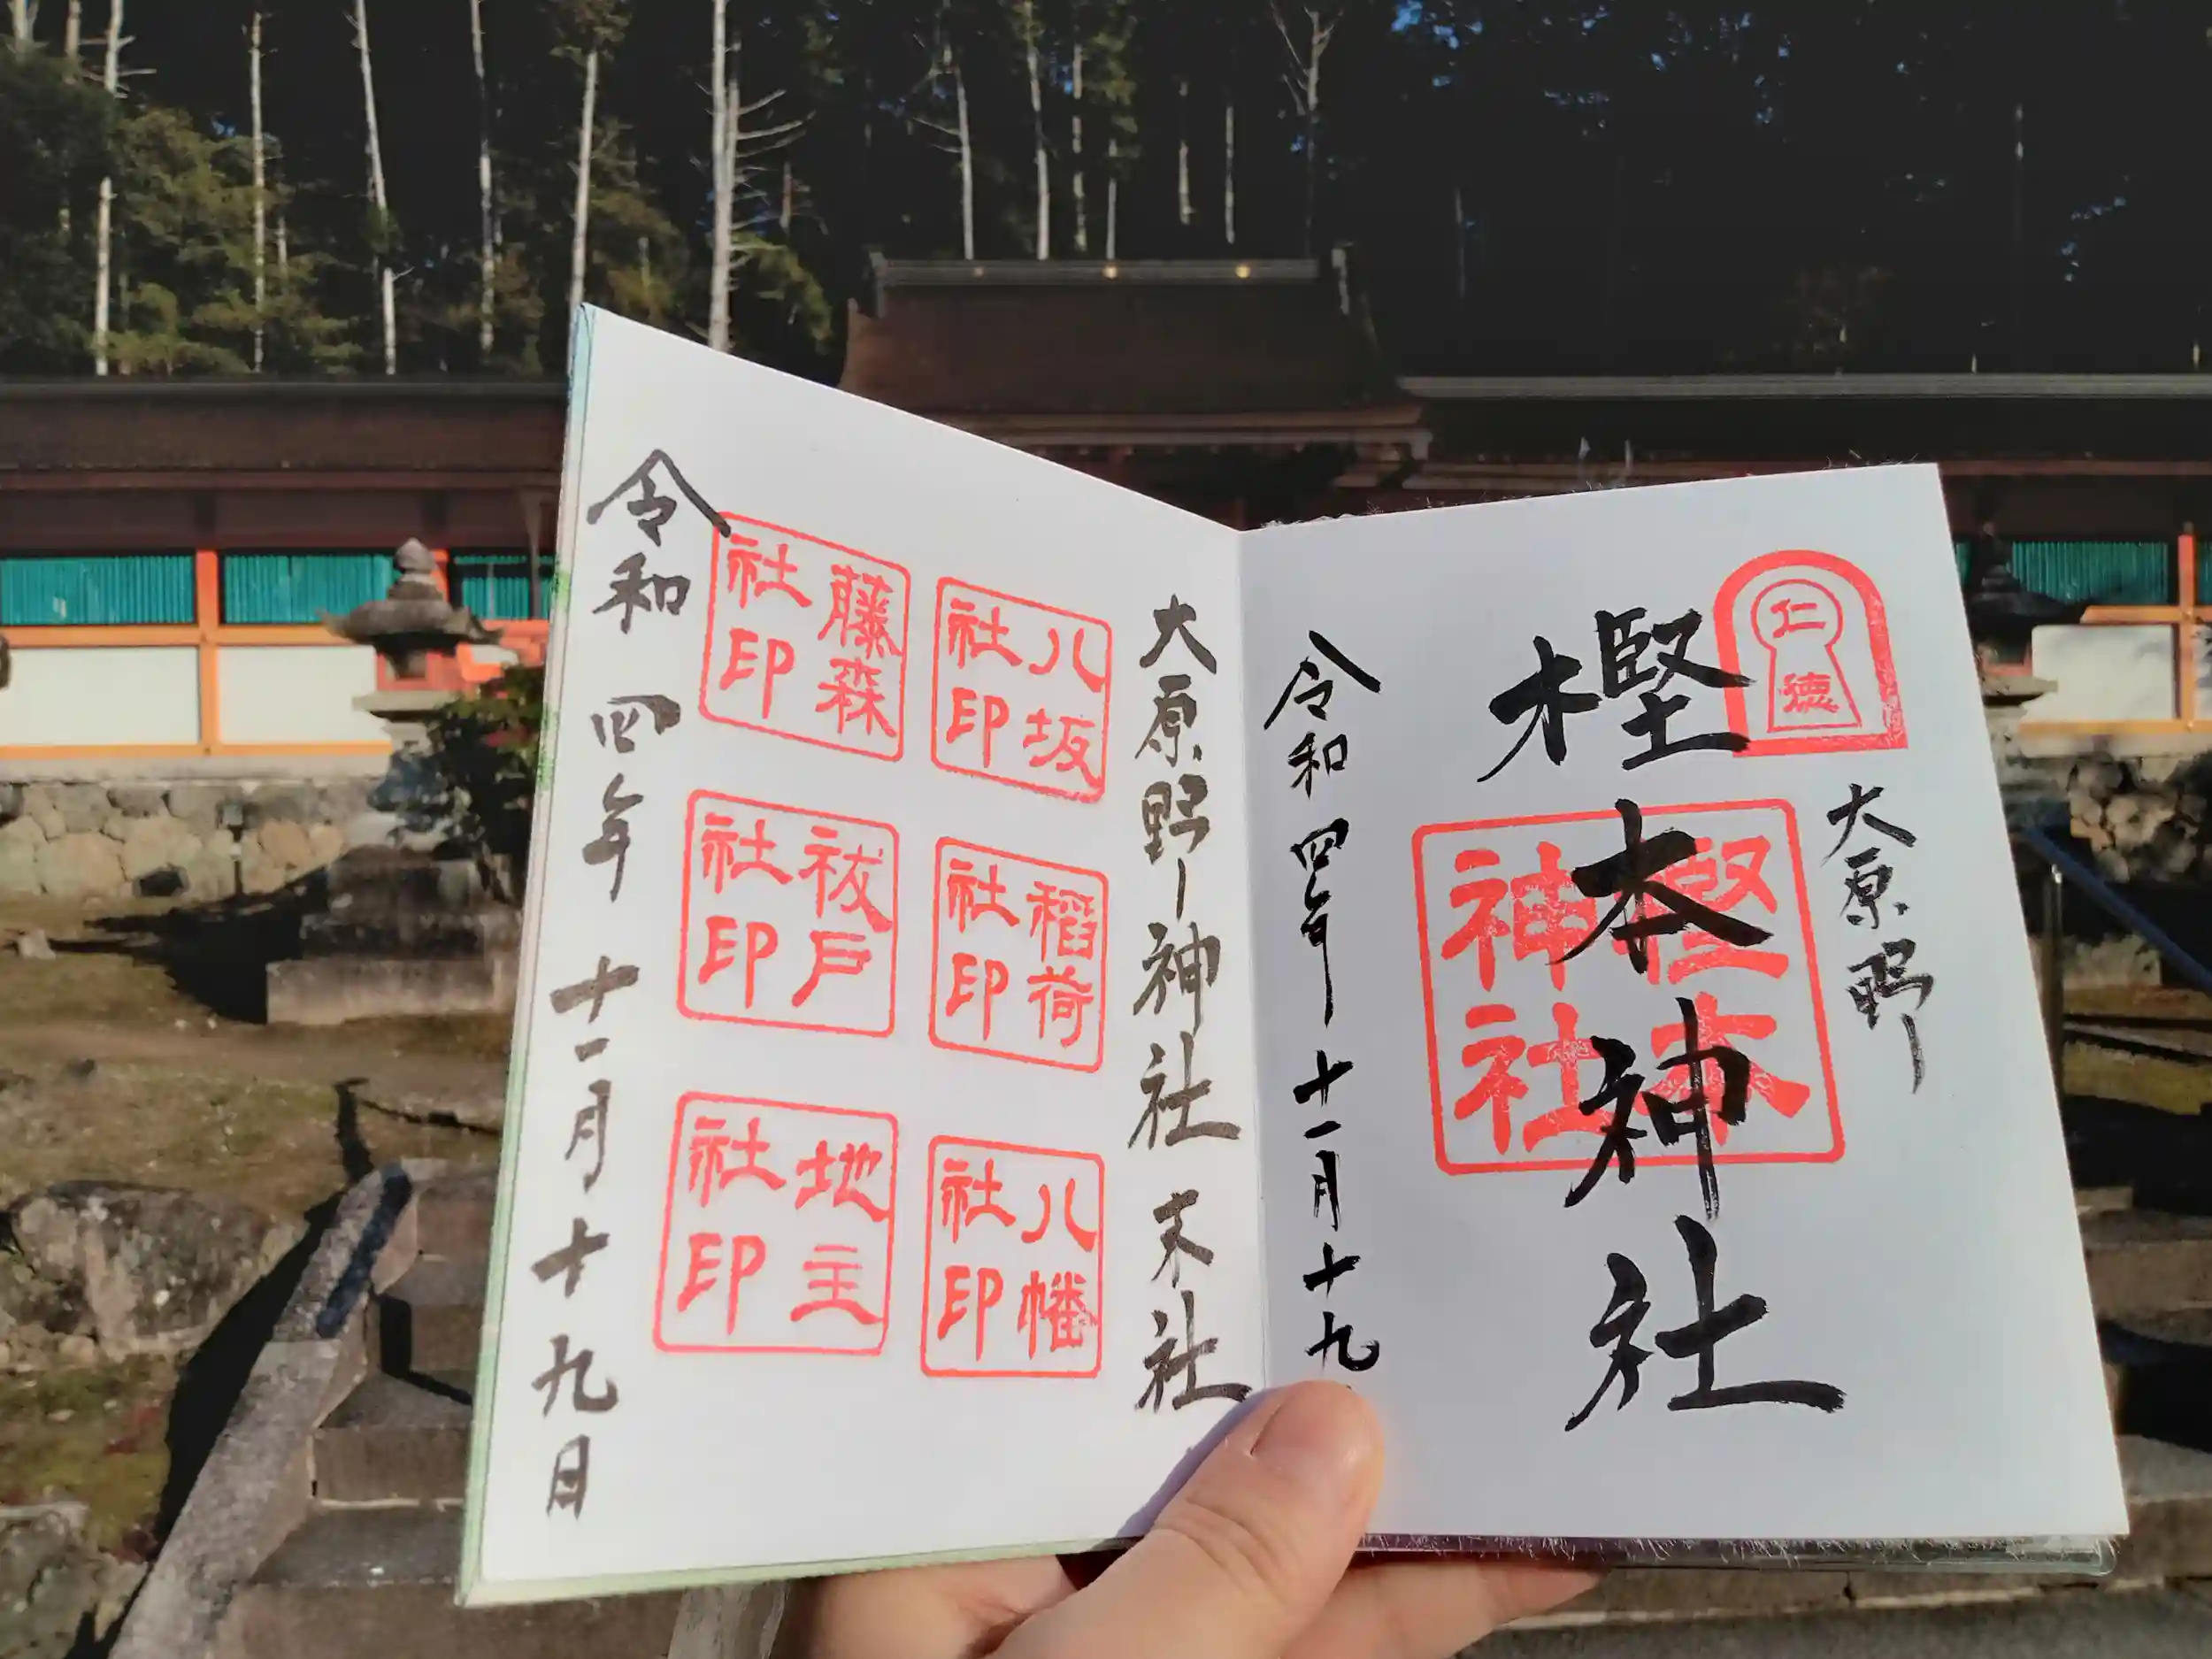 仁徳
大原野
樫本神社
樫本
神社
令和四年十一月十九
大原野神社 末社
八坂
社印
稲荷
社印
八幡
社印
藤森
社印
祓戸
社印
地主
社印
令和四年十一月十九日